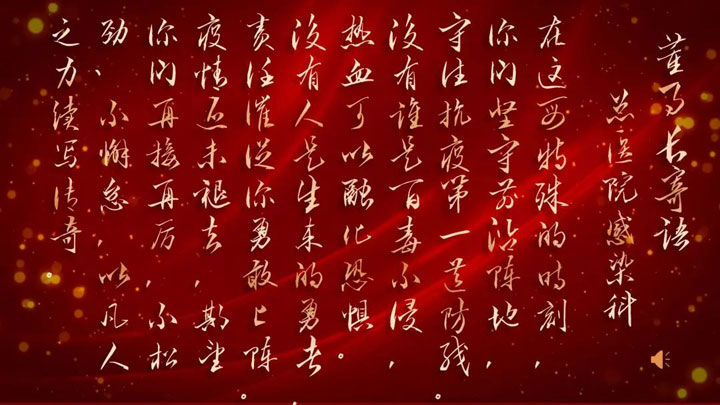 董事长寄语
总医院感染科
在这万分特殊的时刻，
你们坚守前沿阵地，
守住抗疫第一道防线。
没有谁是百毒不侵，
热血可以融化恐惧。
没有人是生来的勇者，
责任催促你勇敢上阵。
疫情还未褪去，期望
你们再接再厉，不松
劲、不懈怠，以凡人
之力续写传奇。